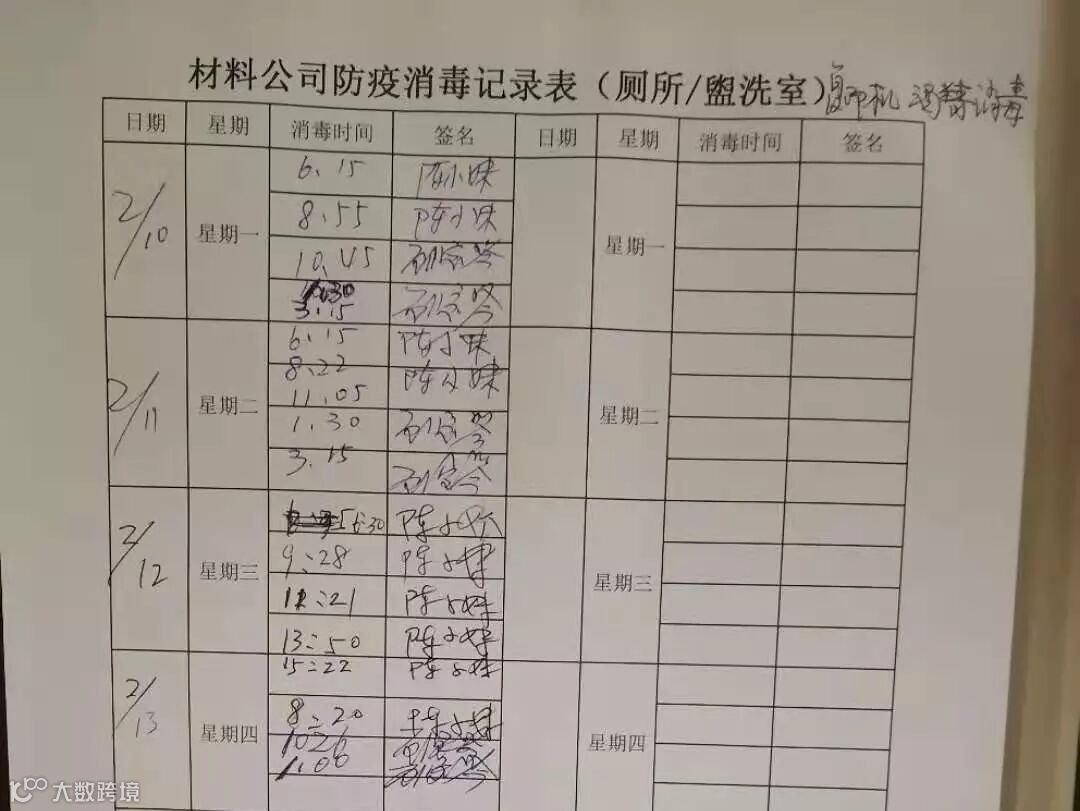 材料公司防疫消毒记录表（厕所/盥洗室）复印机 消毒
日期 星期 消毒时间 签名 日期 星期 消毒时间 签名
2/10 星期一 6.15 陈小妹 星期一
8.55 陈小妹
10.45
3.15
2/11 星期二 6.15 陈小妹 星期二
8.22 陈小妹
11.05
1.30
3.15
2/12 星期三 6:30 陈小妹 星期三
9:28 陈小妹
11:21 陈小妹
13:50 陈小妹
2/13 星期四 15:22 陈小妹 星期四
8:20 陈小妹
1026
1.00
大数跨境